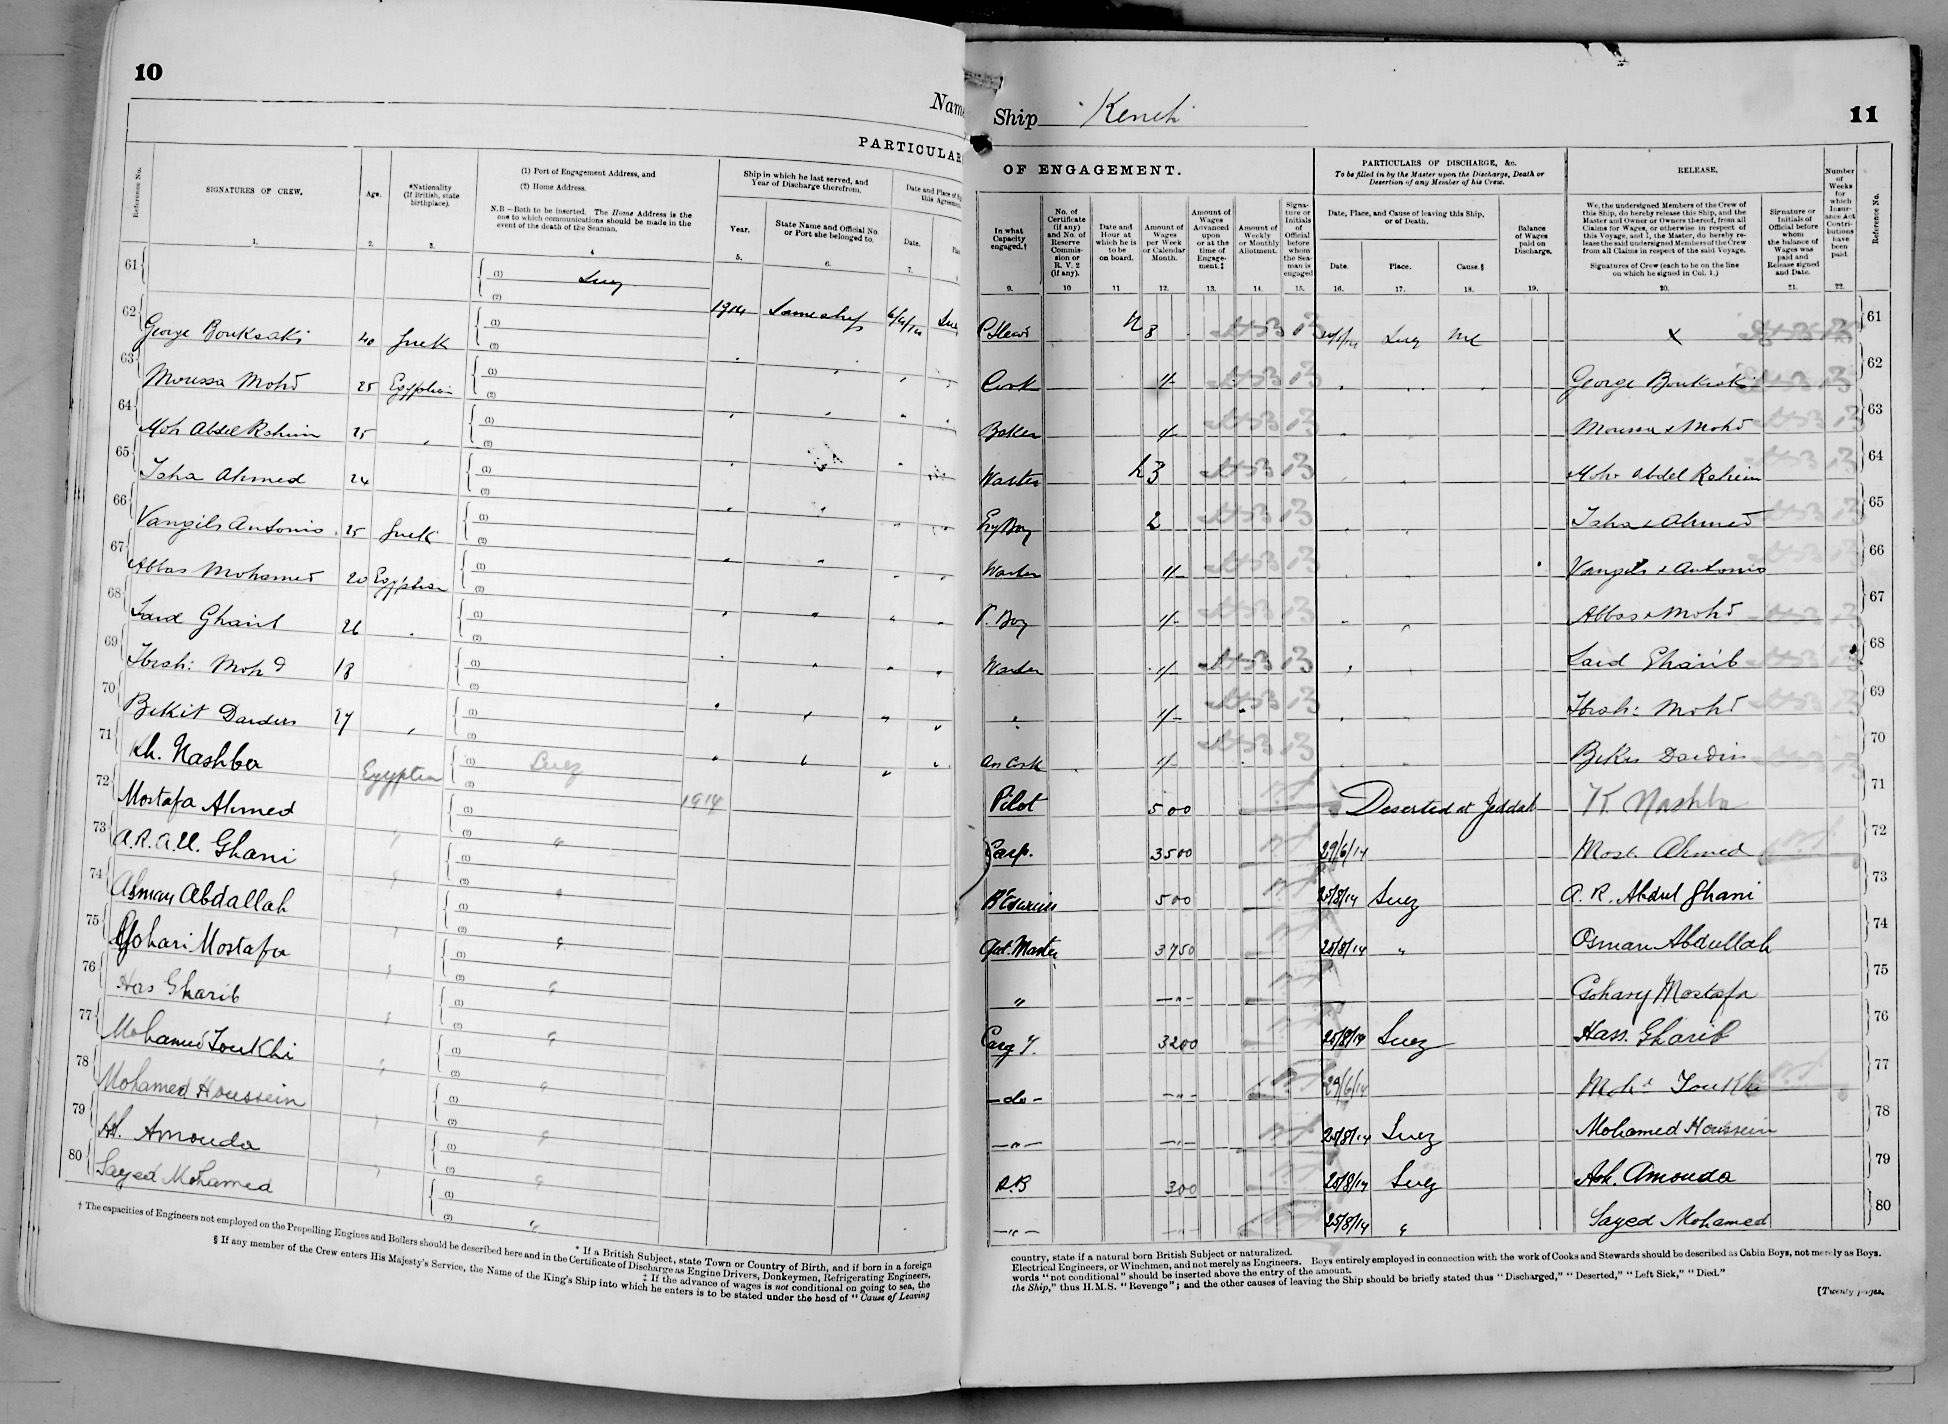 10
Name
PARTICULARS
Reference No.
SIGNATURES OF CREW.
Age.
*Nationality (If British, state birthplace).
(1) Port of Engagement Address, and
(2) Home Address.
N.B—Both to be inserted. The Home Address is the one to which communications should be made in the event of the death of the Seaman.
Ship in which he last served, and Year of Discharge therefrom.
Year.
State Name and Official No. or Port she belonged to.
Date.
1. 2. 3. 4 5. 6. 7.
61 (1) Suez (2)
1914 Same ship 6/4/14
62 George Bouksaki 40 Greek (1) (2)
63 Moussa Mohd 25 Egyptian (1) (2)
64 Moh Abdel Rahim 25 " (1) (2)
65 Taha Ahmed 24 (1) (2)
66 Vangils Antonis 25 Greek (1) (2)
67 Abbas Mohamed 20 Egyptian (1) (2)
68 Said Gharib 26 " (1) (2)
69 Ibrah: Mohd 18 (1) (2)
70 Bekit Dardeer 27 " (1) (2)
71 Kh. Nashba Egyptian (1) Suez (2)
72 Mostafa Ahmed (1) (2) " 1914
73 A.R.A.U. Ghani " (1) (2) "
74 Asman Abdallah " (1) (2) "
75 Gohari Mostafa " (1) (2) "
76 Has Gharib " (1) (2) "
77 Mohamed Toukhi " (1) (2) "
78 Mohamed Houssein " (1) (2) "
79 Ah. Amouda " (1) (2) "
80 Sayed Mohamed " (1) (2) "
* If a British Subject, state Town or Country of Birth, and if born in a foreign
† The capacities of Engineers not employed on the Propelling Engines and Boilers should be described here and in the Certificate of Discharge as Engine Drivers, Donkeymen, Refrigerating Engineers,
‡ If the advance of wages is not conditional on going to sea, the
§ If any member of the Crew enters His Majesty's Service, the Name of the King's Ship into which he enters is to be stated under the head of "Cause of Leaving
Ship "Keneh"
11
OF ENGAGEMENT.
PARTICULARS OF DISCHARGE, &c.
To be filled in by the Master upon the Discharge, Death or Desertion of any Member of his Crew.
RELEASE.
Number of Weeks for which Insurance Act Contributions have been paid.
Reference No.
In what Capacity engaged.†
No. of Certificate (if any) and No. of Reserve Commission or R. V. 2 (if any).
Date and Hour at which he is to be on board.
Amount of Wages per Week or Calendar Month.
Amount of Wages Advanced upon or at the time of Engagement.‡
Amount of Weekly or Monthly Allotment.
Signature or Initials of Official before whom the Seaman is engaged
Date, Place, and Cause of leaving this Ship, or of Death.
Date.
Place.
Cause.§
Balance of Wages paid on Discharge.
We, the undersigned Members of the Crew of this Ship, do hereby release this Ship, and the Master and Owner or Owners thereof, from all Claims for Wages, or otherwise in respect of this Voyage, and I, the Master, do hereby release the said undersigned Members of the Crew from all Claims in respect of the said Voyage.
Signatures of Crew (each to be on the line on which he signed in Col. 1.)
Signature or Initials of Official before whom the balance of Wages was paid and Release signed and Date.
9. 10 11 12. 13. 14. 15. 16. 17. 18. 19. 20. 21. 22.
8 Suez X 61
Cook 4 George Bouksaki 62
Baker 4 Moussa Mohd 63
Waiter 3 Moh Abdel Rahim 64
2 Taha Ahmed 65
Waiter 4 Vangils Antonis 66
P. Boy 4 Abbas Mohd 67
Waiter 4 Said Gharib 68
" 4 Ibrah: Mohd 69
4 Bekit Dardir 70
Pilot 500 Deserted at Jeddah K Nashba 71
Carp. 3500 29/6/14 Most. Ahmed 72
500 25/8/14 Suez A. R. Abdul Ghani 73
Qat. Master 3750 25/8/14 " Osman Abdullah 74
" —"— Gohary Mostafa 75
Carg Y. 3200 25/8/14 Suez Hass. Gharib 76
—do— —"— 29/6/14 Mohd Toukhi 77
—"— —"— 25/8/14 Suez Mohamed Houssein 78
A.B 300 25/8/14 Suez Ah. Amouda 79
—"— —"— 25/8/14 " Sayed Mohamed 80
country, state if a natural born British Subject or naturalized.
Electrical Engineers, or Winchmen, and not merely as Engineers. Boys entirely employed in connection with the work of Cooks and Stewards should be described as Cabin Boys, not merely as Boys.
words "not conditional" should be inserted above the entry of the amount.
the Ship," thus H.M.S. "Revenge"; and the other causes of leaving the Ship should be briefly stated thus "Discharged," "Deserted," "Left Sick," "Died."
[Twenty pages.